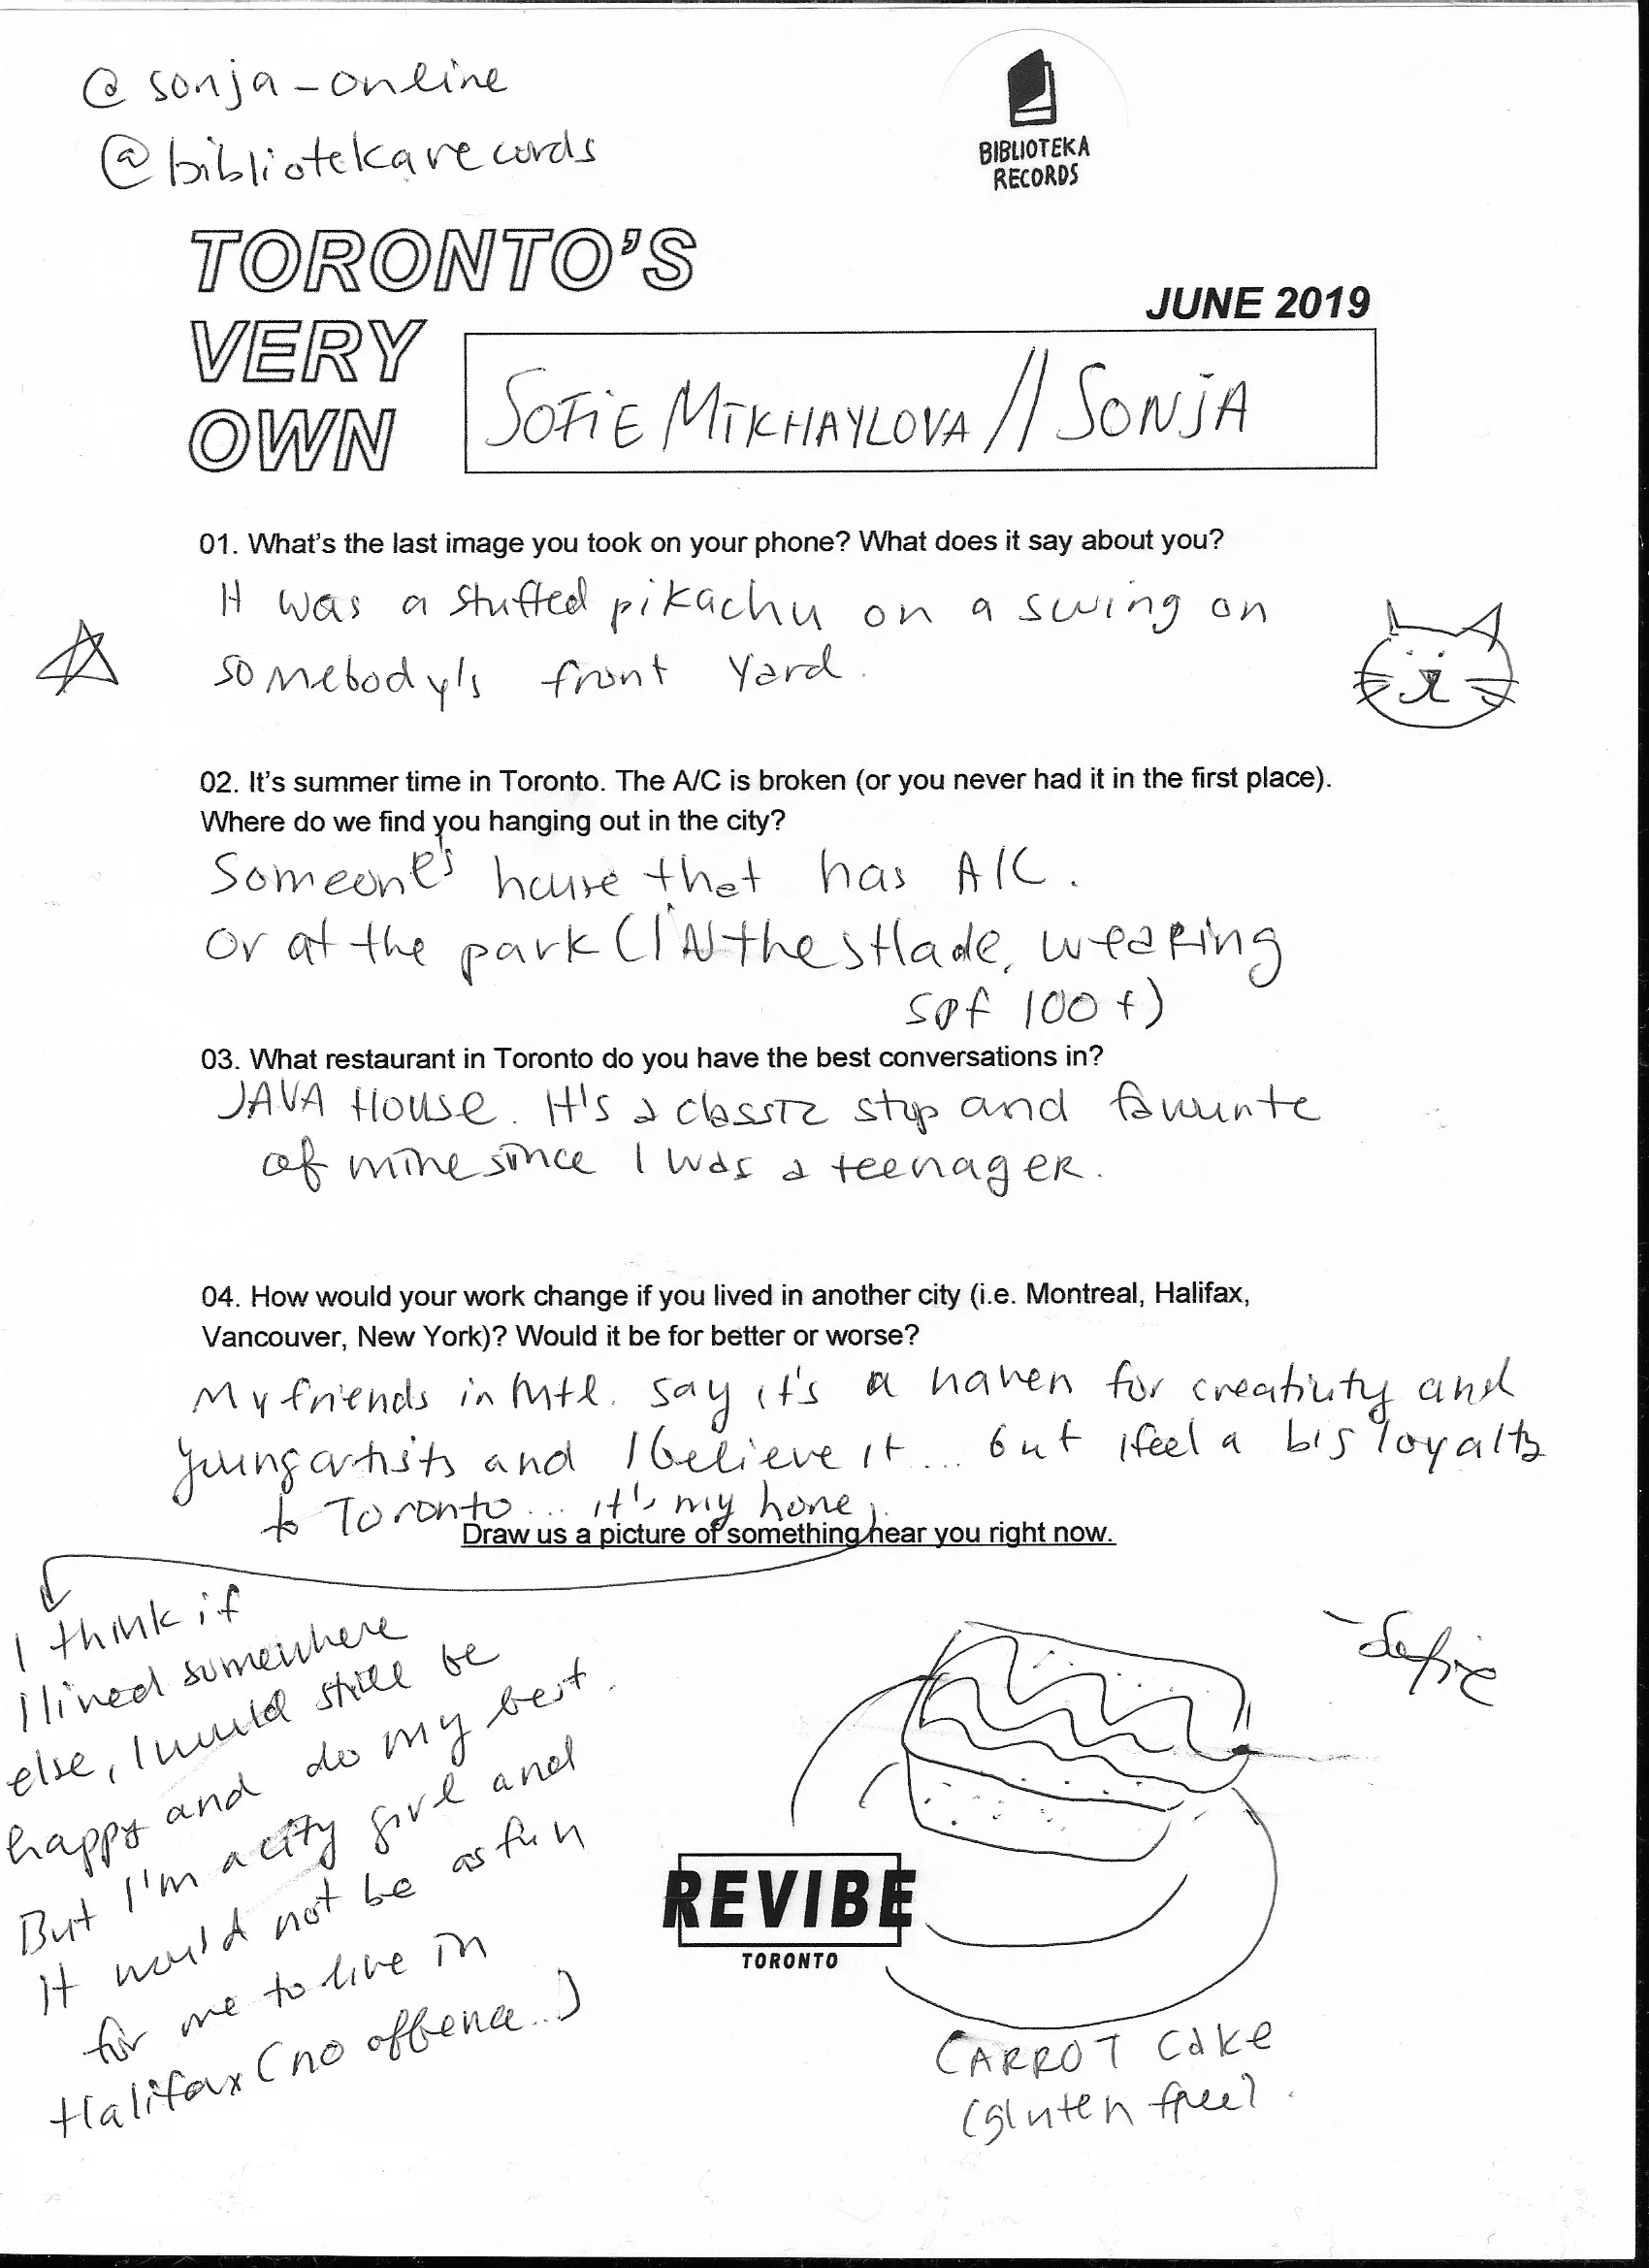 @sonja_online
@bibliotekarecords
BIBLIOTEKA
RECORDS
TORONTO'S
VERY
OWN
JUNE 2019
SOFIE MIKHAYLOVA // SONJA
01. What's the last image you took on your phone? What does it say about you?
It was a stuffed pikachu on a swing on
somebody's front yard.
02. It's summer time in Toronto. The A/C is broken (or you never had it in the first place).
Where do we find you hanging out in the city?
Someone's house that has A/C.
Or at the park (IN the sHade, weaRing
SPf 100+)
03. What restaurant in Toronto do you have the best conversations in?
JAVA House. It's a classic stop and favourite
of mine since I was a teenageR.
04. How would your work change if you lived in another city (i.e. Montreal, Halifax,
Vancouver, New York)? Would it be for better or worse?
My friends in Mtl. say it's a haven for creativity and
young artists and I believe it... but i feel a big loyalty
to Toronto... it's my home.
Draw us a picture of something near you right now.
I think if
I lived somewhere
else, I would still be
happy and do my best.
But I'm a city girl and
It would not be as fun
for me to live in
Halifax (no offence...)
-Sofie
REVIBE
TORONTO
CARROT Cake
(gluten free).